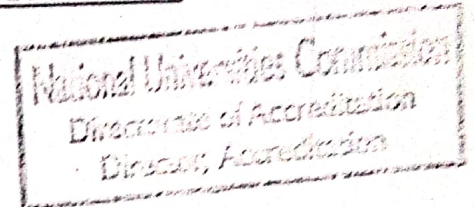 National Universities Commission
Directorate of Accreditation
Director, Accreditation